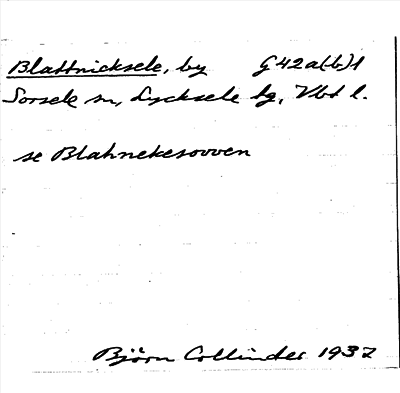 Blattnicksele, by G 42a(b)1
Sorsele sn, Lycksele lg, Vbt l.
se Blahnekesovven
Björn Collinder 1937